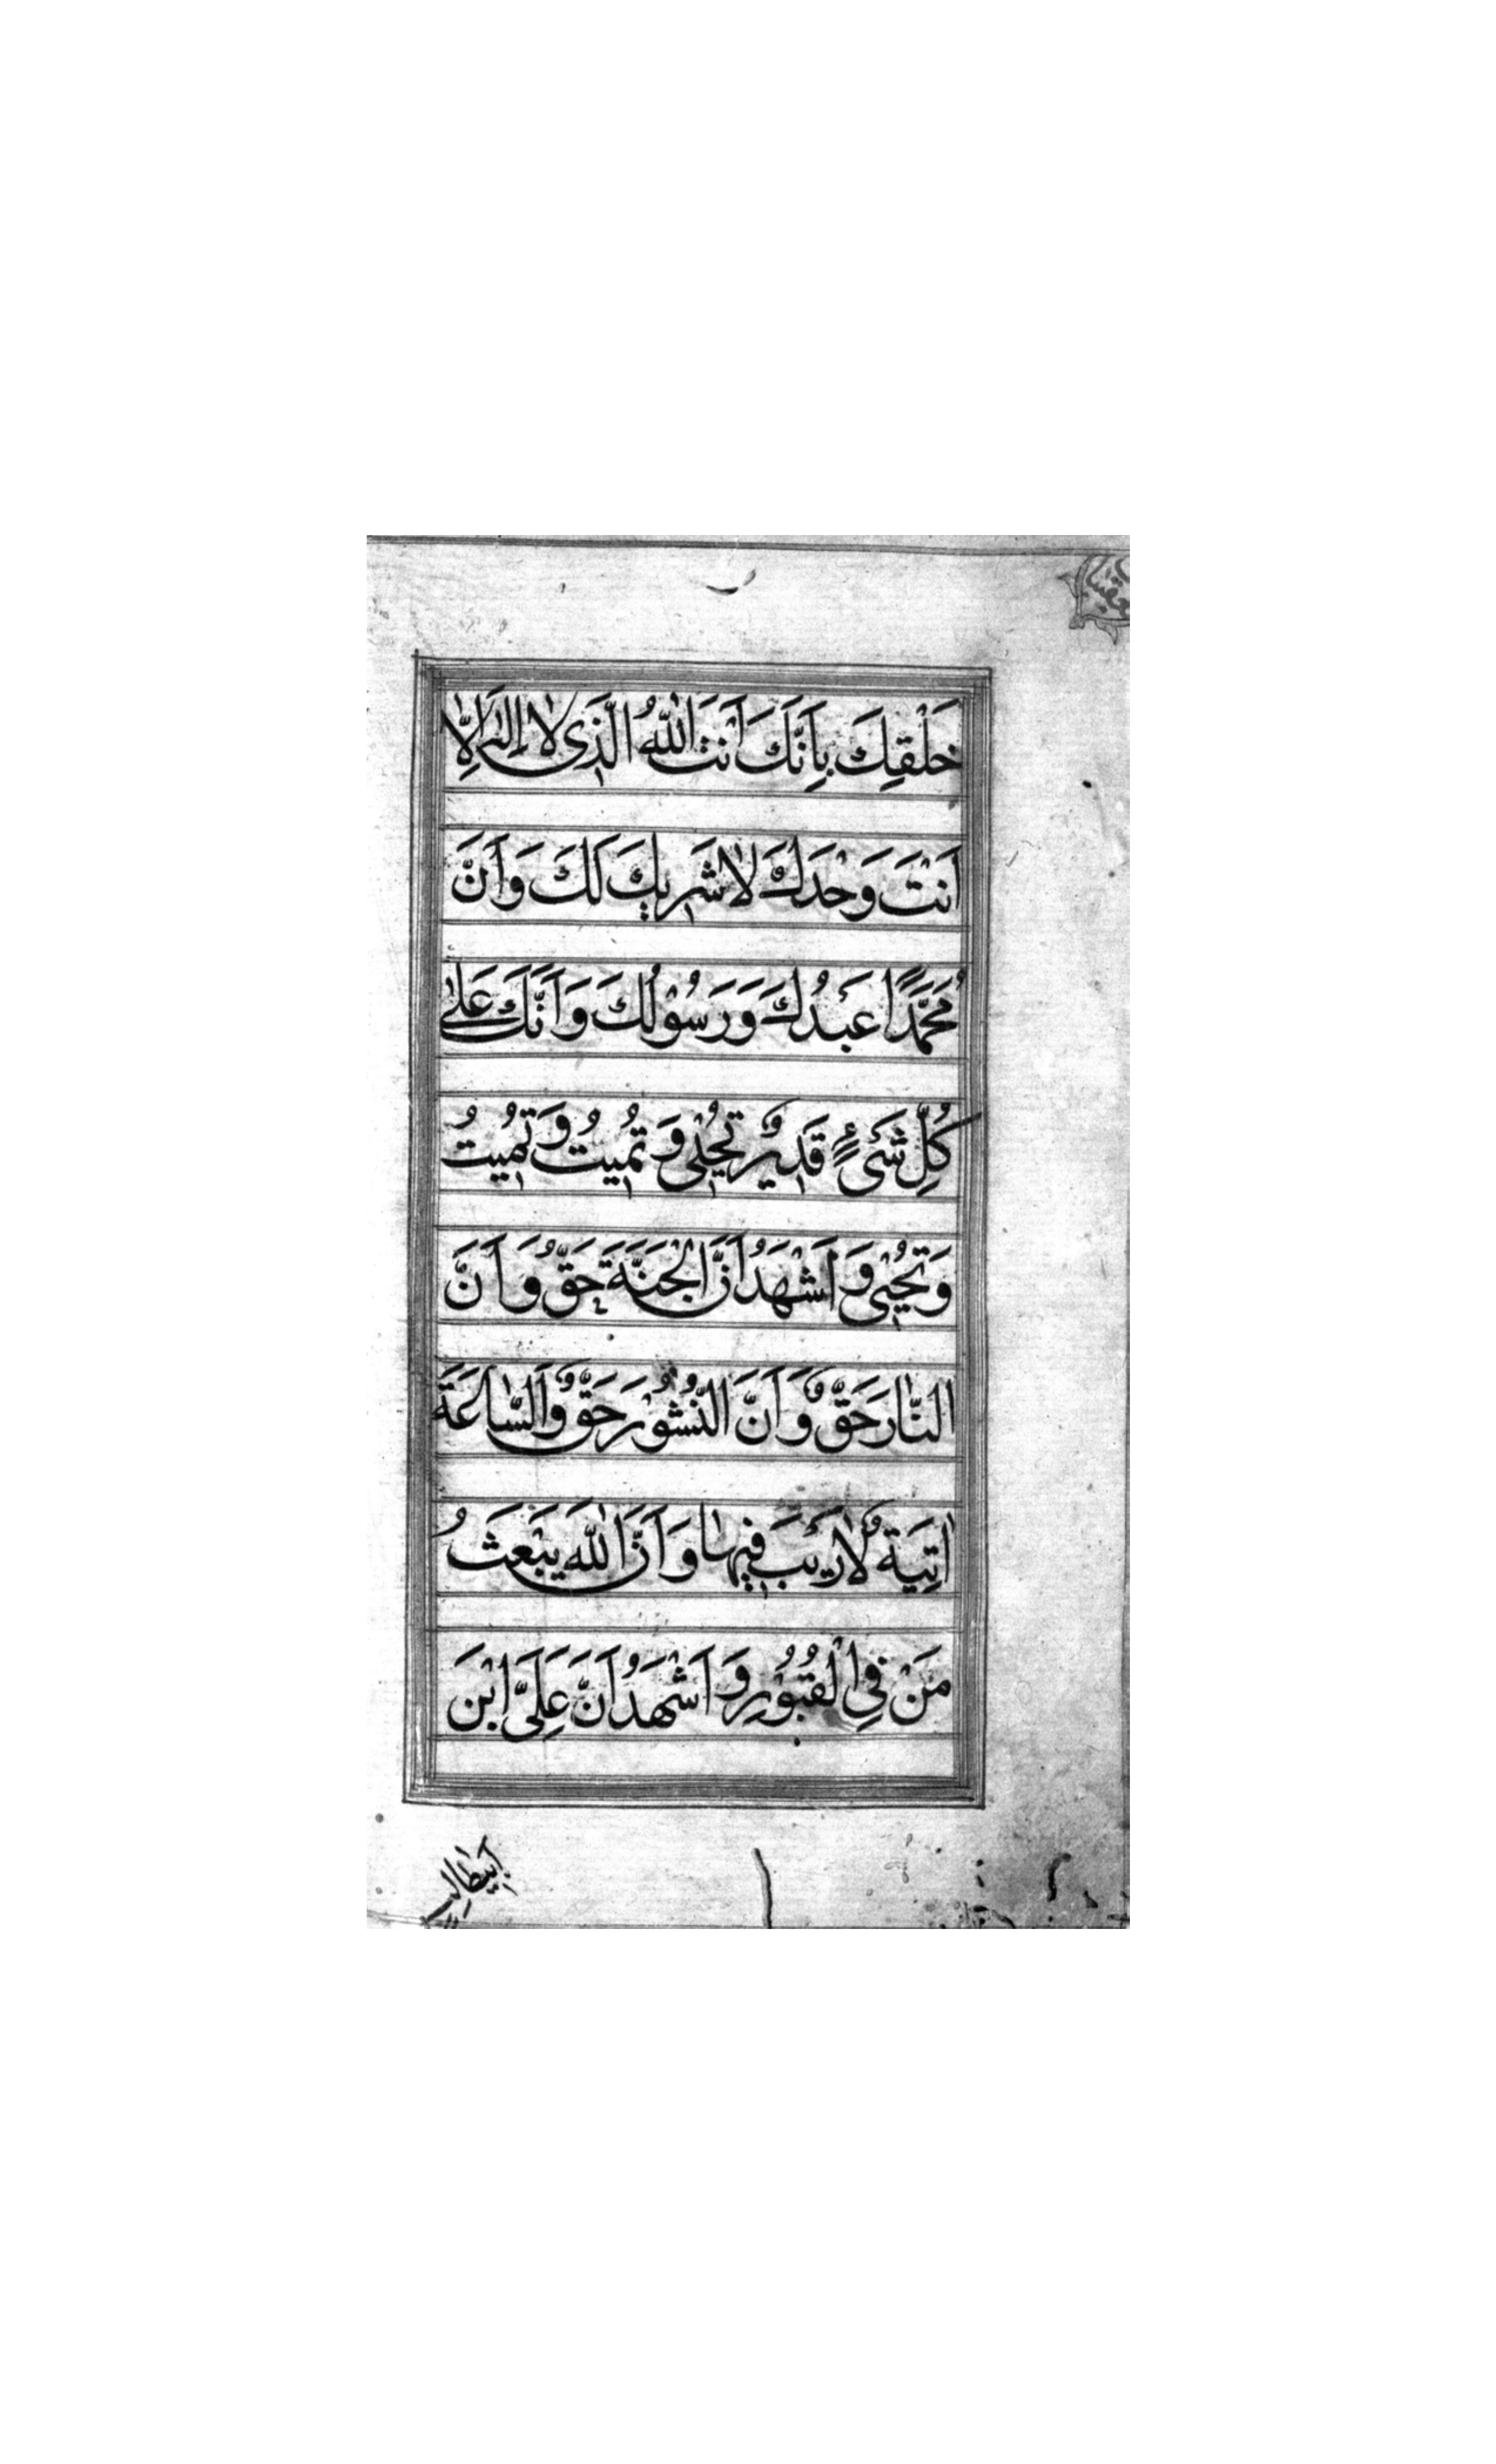 خَلْقِكَ بِاَنَّكَ اَنْتَ اللّٰهُ الَّذِى لَا اِلٰهَ اِلَّا
اَنْتَ وَحْدَكَ لَا شَرِيكَ لَكَ وَاَنَّ
مُحَمَّدًا عَبْدُكَ وَرَسُوْلُكَ وَاَنَّكَ عَلٰى
كُلِّ شَىْءٍ قَدِيْرٌ تُحْيِى وَ تُمِيتُ وَ تُمِيتُ
وَ تُحْيِى وَ اَشْهَدُ اَنَّ الْجَنَّةَ حَقٌّ وَ اَنَّ
النَّارَ حَقٌّ وَ اَنَّ النُّشُوْرَ حَقٌّ وَ السَّاعَةَ
اٰتِيَةٌ لَا رَيْبَ فِيهَا وَ اَنَّ اللّٰهَ يَبْعَثُ
مَنْ فِى الْقُبُوْرِ وَ اَشْهَدُ اَنَّ عَلِىَّ ابْنَ
ابيطالب